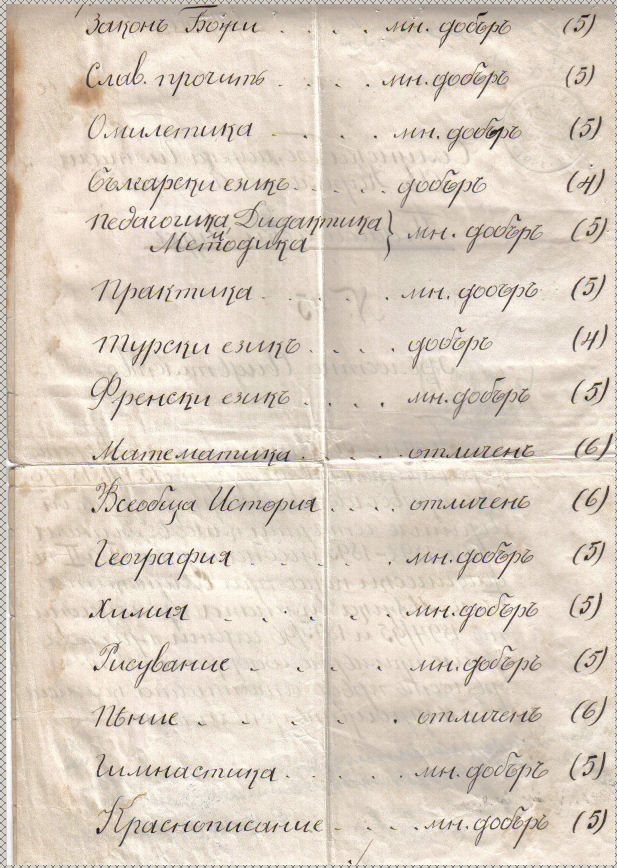 Законъ Божи . . . . мн. добъръ (5)
Слав. прочитъ . . . мн. добъръ (5)
Омилетика . . . . мн. добъръ (5)
Български езикъ . . . . добъръ (4)
Педагогика, Дидактика } мн. добъръ (5)
и Методика
Практика . . . . мн. добъръ (5)
Турски езикъ . . . . добъръ (4)
Френски езикъ . . . . мн. добъръ (5)
Математика . . . . отличенъ (6)
Всеобща История . . . отличенъ (6)
География . . . . мн. добъръ (5)
Химия . . . . . мн. добъръ (5)
Рисувание . . . . мн. добъръ (5)
Пѣние . . . . . отличенъ (6)
Гимнастика . . . . мн. добъръ (5)
Краснописание . . . . мн. добъръ (5)